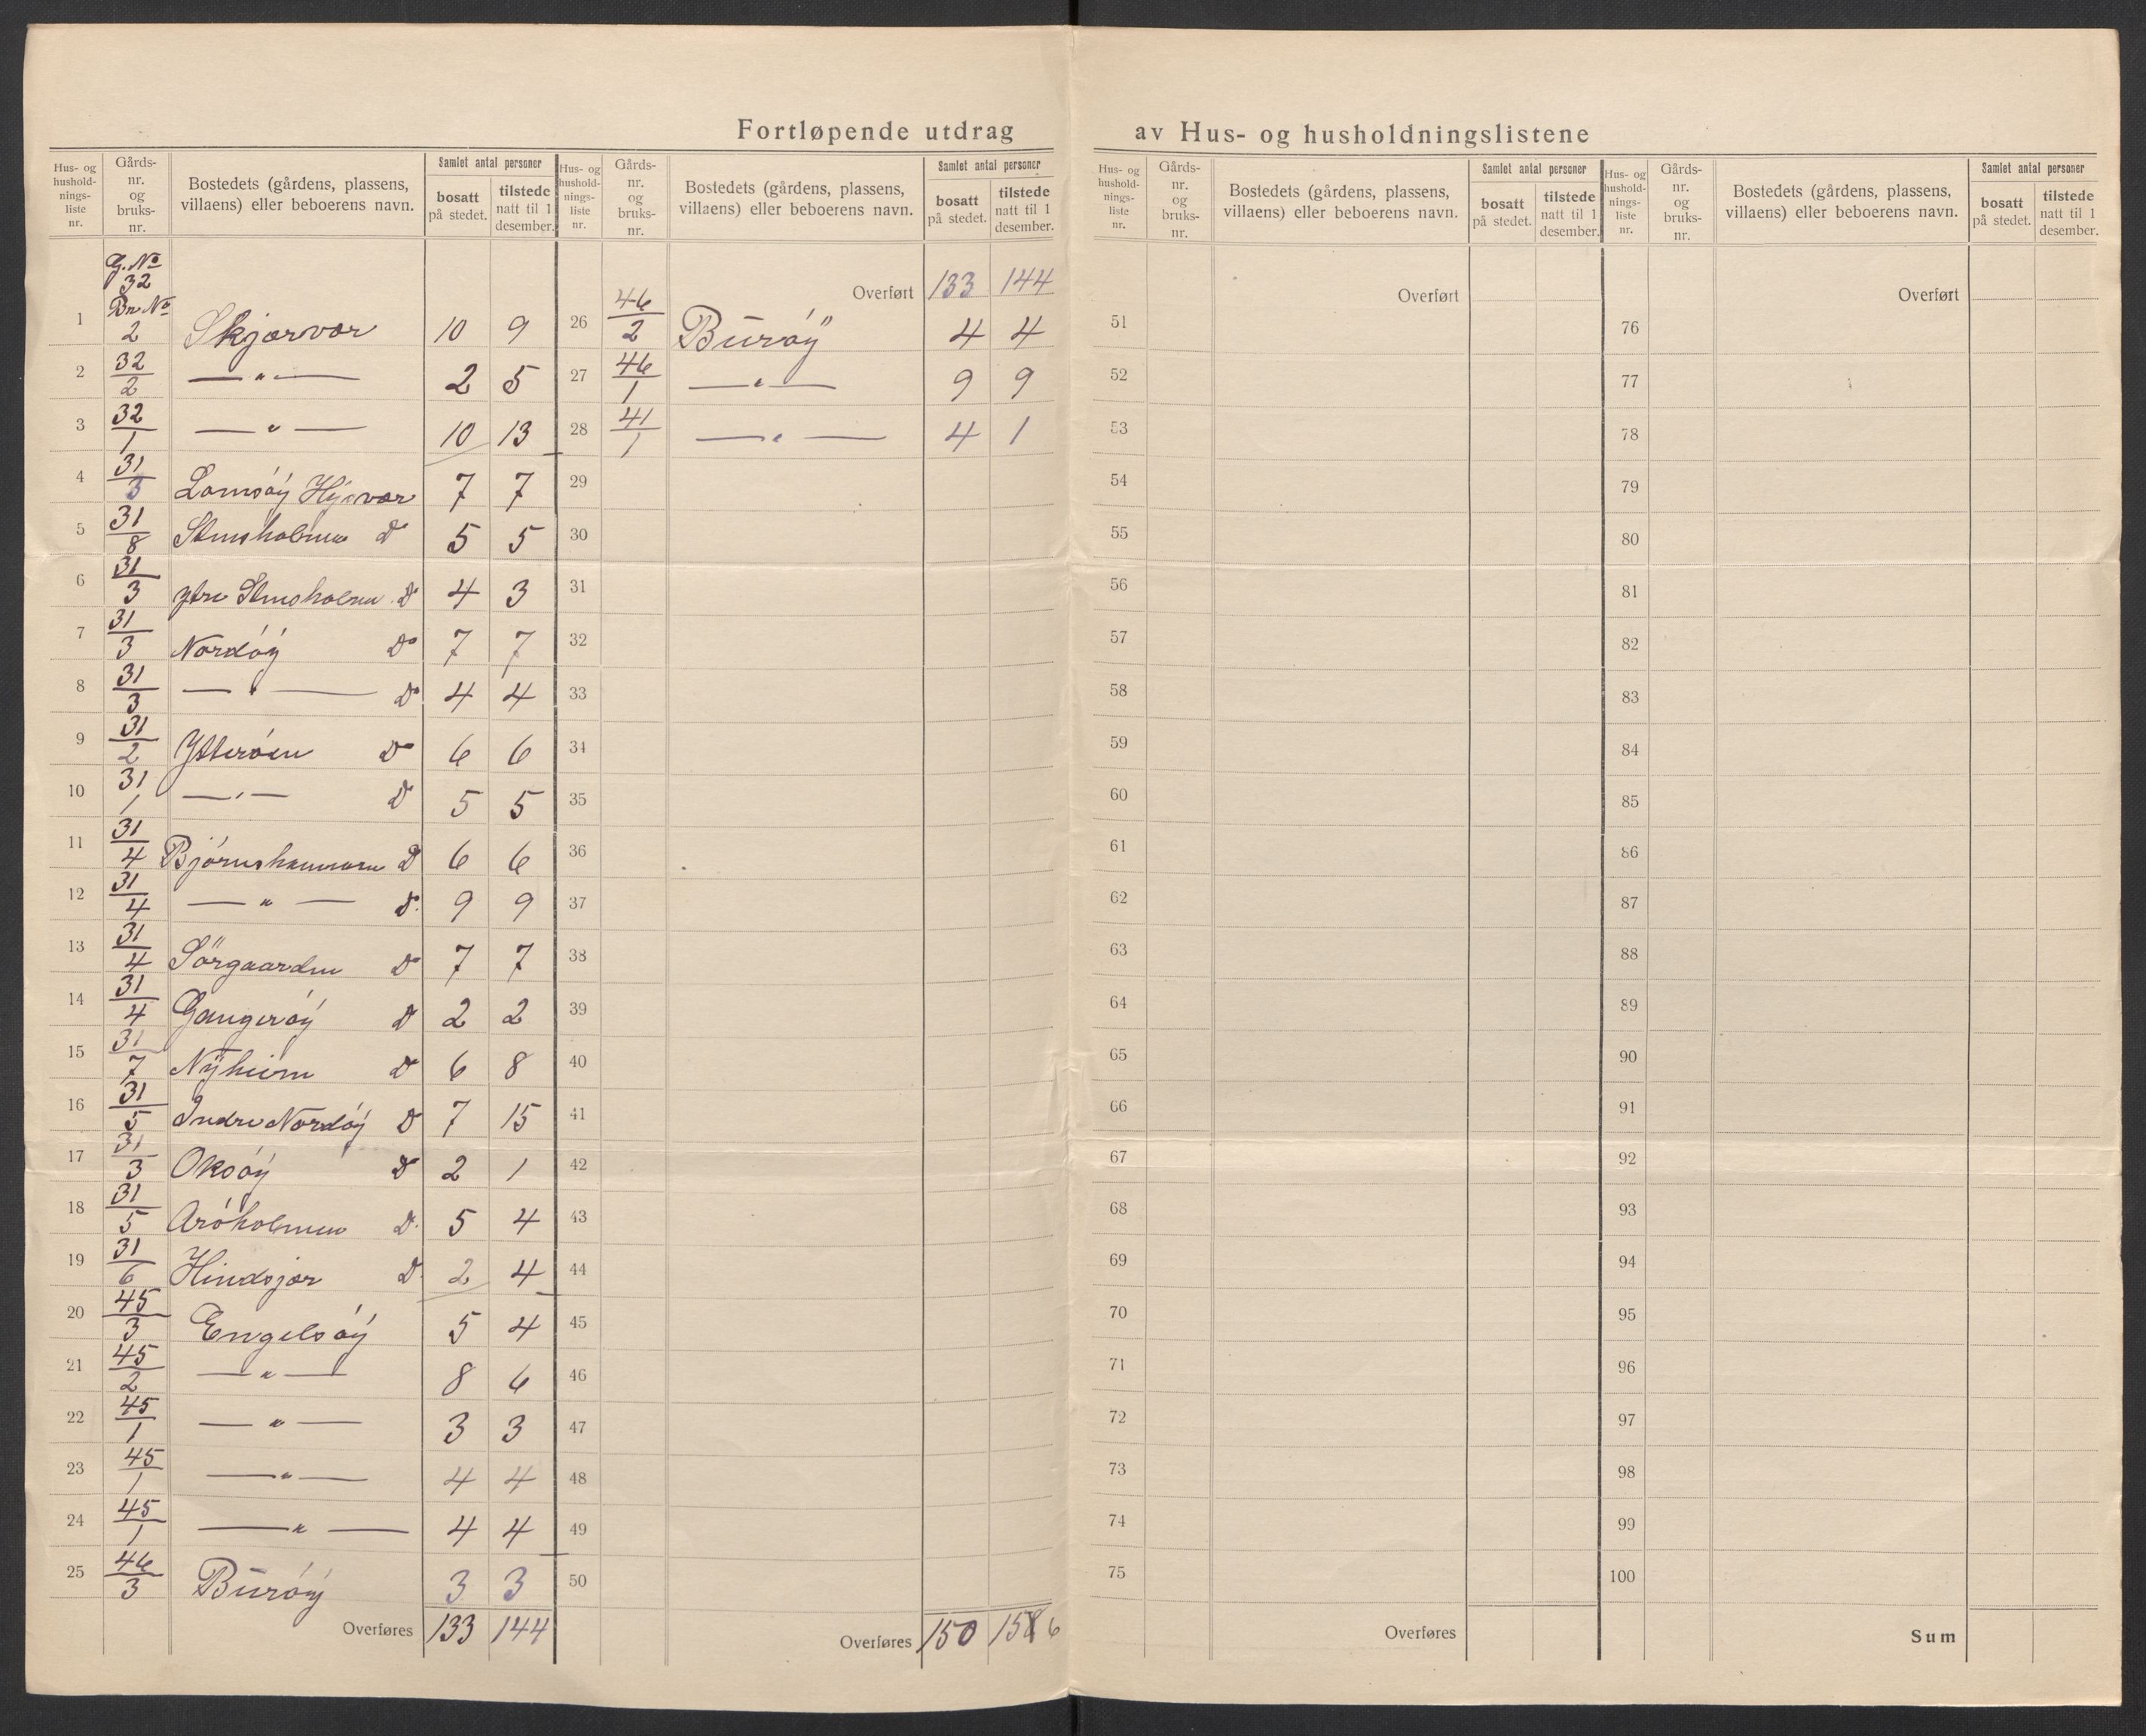 Fortløpende utdrag av Hus- og husholdningslistene
Hus- og hushold-nings-liste nr. | Gårds-nr. og bruks-nr. | Bostedets (gårdens, plassens, villaens) eller beboerens navn. | Samlet antal personer | bosatt på stedet. | tilstede natt til 1 desember.
G. No 32
1 Br No 2 Skjærvær 10 9
2 32/2 —〃— 2 5
3 32/1 —〃— 10 13
4 31/3 Lamsöy Hysvær 7 7
5 31/8 Stensholmen Do 5 5
6 31/3 ytre Stensholmen Do 4 3
7 31/3 Nordöy Do 7 7
8 31/3 —〃— Do 4 4
9 31/2 Ytteröen Do 6 6
10 31/1 —〃— Do 5 5
11 31/4 Björnshammeren Do 6 6
12 31/4 —〃— Do 9 9
13 31/4 Sörgaarden Do 7 7
14 31/4 Gangeröy Do 2 2
15 31/7 Nyheim Do 6 8
16 31/5 Indre Nordöy Do 7 15
17 31/3 Oksöy Do 2 1
18 31/5 Aröholmen Do 5 4
19 31/6 Hindsjær Do 2 4
20 45/3 Engelsöy 5 4
21 45/2 —〃— 8 6
22 45/1 —〃— 3 3
23 45/1 —〃— 4 4
24 45/1 —〃— 4 4
25 46/3 Buröy 3 3
Overføres 133 144
Hus- og hushold-nings-liste nr. | Gårds-nr. og bruks-nr. | Bostedets (gårdens, plassens, villaens) eller beboerens navn. | Samlet antal personer | bosatt på stedet. | tilstede natt til 1 desember.
Overført 133 144
26 46/2 Buröy 4 4
27 46/1 —〃— 9 9
28 41/1 —〃— 4 1
29
30
31
32
33
34
35
36
37
38
39
40
41
42
43
44
45
46
47
48
49
50
Overføres 150 158 6
Hus- og hushold-nings-liste nr. | Gårds-nr. og bruks-nr. | Bostedets (gårdens, plassens, villaens) eller beboerens navn. | Samlet antal personer | bosatt på stedet. | tilstede natt til 1 desember.
Overført
51
52
53
54
55
56
57
58
59
60
61
62
63
64
65
66
67
68
69
70
71
72
73
74
75
Overføres
Hus- og hushold-nings-liste nr. | Gårds-nr. og bruks-nr. | Bostedets (gårdens, plassens, villaens) eller beboerens navn. | Samlet antal personer | bosatt på stedet. | tilstede natt til 1 desember.
Overført
76
77
78
79
80
81
82
83
84
85
86
87
88
89
90
91
92
93
94
95
96
97
98
99
100
Sum